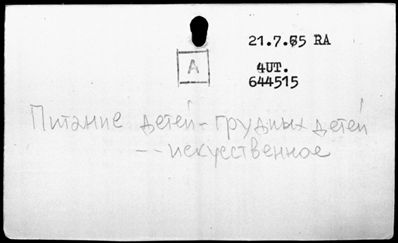 21.7.65 RA
A
4UT.
644515
Питание детей - грудных детей
-- искуственное